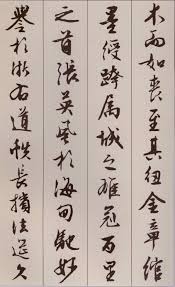 木而如喪至其紐金章綰
墨綬跨屬城之雄冠百里
之首張英風於海甸馳妙
譽於浙右道帙長擯法筵久